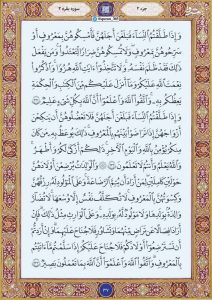 جزء ۲
سوره بقره ۲
وَإِذَا طَلَّقْتُمُ ٱلنِّسَآءَ فَبَلَغْنَ أَجَلَهُنَّ فَأَمْسِكُوهُنَّ بِمَعْرُوفٍ أَوْ
سَرِّحُوهُنَّ بِمَعْرُوفٍ وَلَا تُمْسِكُوهُنَّ ضِرَارًا لِّتَعْتَدُوا۟ وَمَن يَفْعَلْ
ذَٰلِكَ فَقَدْ ظَلَمَ نَفْسَهُۥ وَلَا تَتَّخِذُوٓا۟ ءَايَٰتِ ٱللَّهِ هُزُوًا وَٱذْكُرُوا۟
نِعْمَتَ ٱللَّهِ عَلَيْكُمْ وَمَآ أَنزَلَ عَلَيْكُم مِّنَ ٱلْكِتَٰبِ وَٱلْحِكْمَةِ
يَعِظُكُم بِهِۦ وَٱتَّقُوا۟ ٱللَّهَ وَٱعْلَمُوٓا۟ أَنَّ ٱللَّهَ بِكُلِّ شَىْءٍ عَلِيمٌ ۝٢٣١
وَإِذَا طَلَّقْتُمُ ٱلنِّسَآءَ فَبَلَغْنَ أَجَلَهُنَّ فَلَا تَعْضُلُوهُنَّ أَن يَنكِحْنَ
أَزْوَٰجَهُنَّ إِذَا تَرَٰضَوْا۟ بَيْنَهُم بِٱلْمَعْرُوفِ ذَٰلِكَ يُوعَظُ بِهِۦ مَن كَانَ
مِنكُمْ يُؤْمِنُ بِٱللَّهِ وَٱلْيَوْمِ ٱلْءَاخِرِ ذَٰلِكُمْ أَزْكَىٰ لَكُمْ وَأَطْهَرُ
وَٱللَّهُ يَعْلَمُ وَأَنتُمْ لَا تَعْلَمُونَ ۝٢٣٢ وَٱلْوَٰلِدَٰتُ يُرْضِعْنَ أَوْلَٰدَهُنَّ
حَوْلَيْنِ كَامِلَيْنِ لِمَنْ أَرَادَ أَن يُتِمَّ ٱلرَّضَاعَةَ وَعَلَى ٱلْمَوْلُودِ لَهُۥ رِزْقُهُنَّ
وَكِسْوَتُهُنَّ بِٱلْمَعْرُوفِ لَا تُكَلَّفُ نَفْسٌ إِلَّا وُسْعَهَا لَا تُضَآرَّ
وَٰلِدَةٌۢ بِوَلَدِهَا وَلَا مَوْلُودٌ لَّهُۥ بِوَلَدِهِۦ وَعَلَى ٱلْوَارِثِ مِثْلُ ذَٰلِكَ فَإِنْ
أَرَادَا فِصَالًا عَن تَرَاضٍ مِّنْهُمَا وَتَشَاوُرٍ فَلَا جُنَاحَ عَلَيْهِمَا وَإِنْ أَرَدتُّمْ
أَن تَسْتَرْضِعُوٓا۟ أَوْلَٰدَكُمْ فَلَا جُنَاحَ عَلَيْكُمْ إِذَا سَلَّمْتُم مَّآ ءَاتَيْتُم
بِٱلْمَعْرُوفِ وَٱتَّقُوا۟ ٱللَّهَ وَٱعْلَمُوٓا۟ أَنَّ ٱللَّهَ بِمَا تَعْمَلُونَ بَصِيرٌ ۝٢٣٣
۳۷